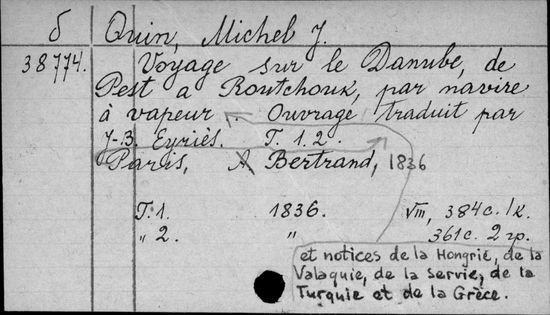 δ Quin, Michel J.
38774. Voyage sur le Danube, de
Pest a Routchouk, par navire
à vapeur. Ouvrage traduit par
J.-B. Eyriès. T. 1.2.
Paris, A Bertrand, 1836
T. 1. 1836. VIII, 384 c. 1 к.
" 2. " 361 c. 2 гр.
et notices de la Hongrie, de la
Valaquie, de la Servie, de la
Turquie et de la Grèce.